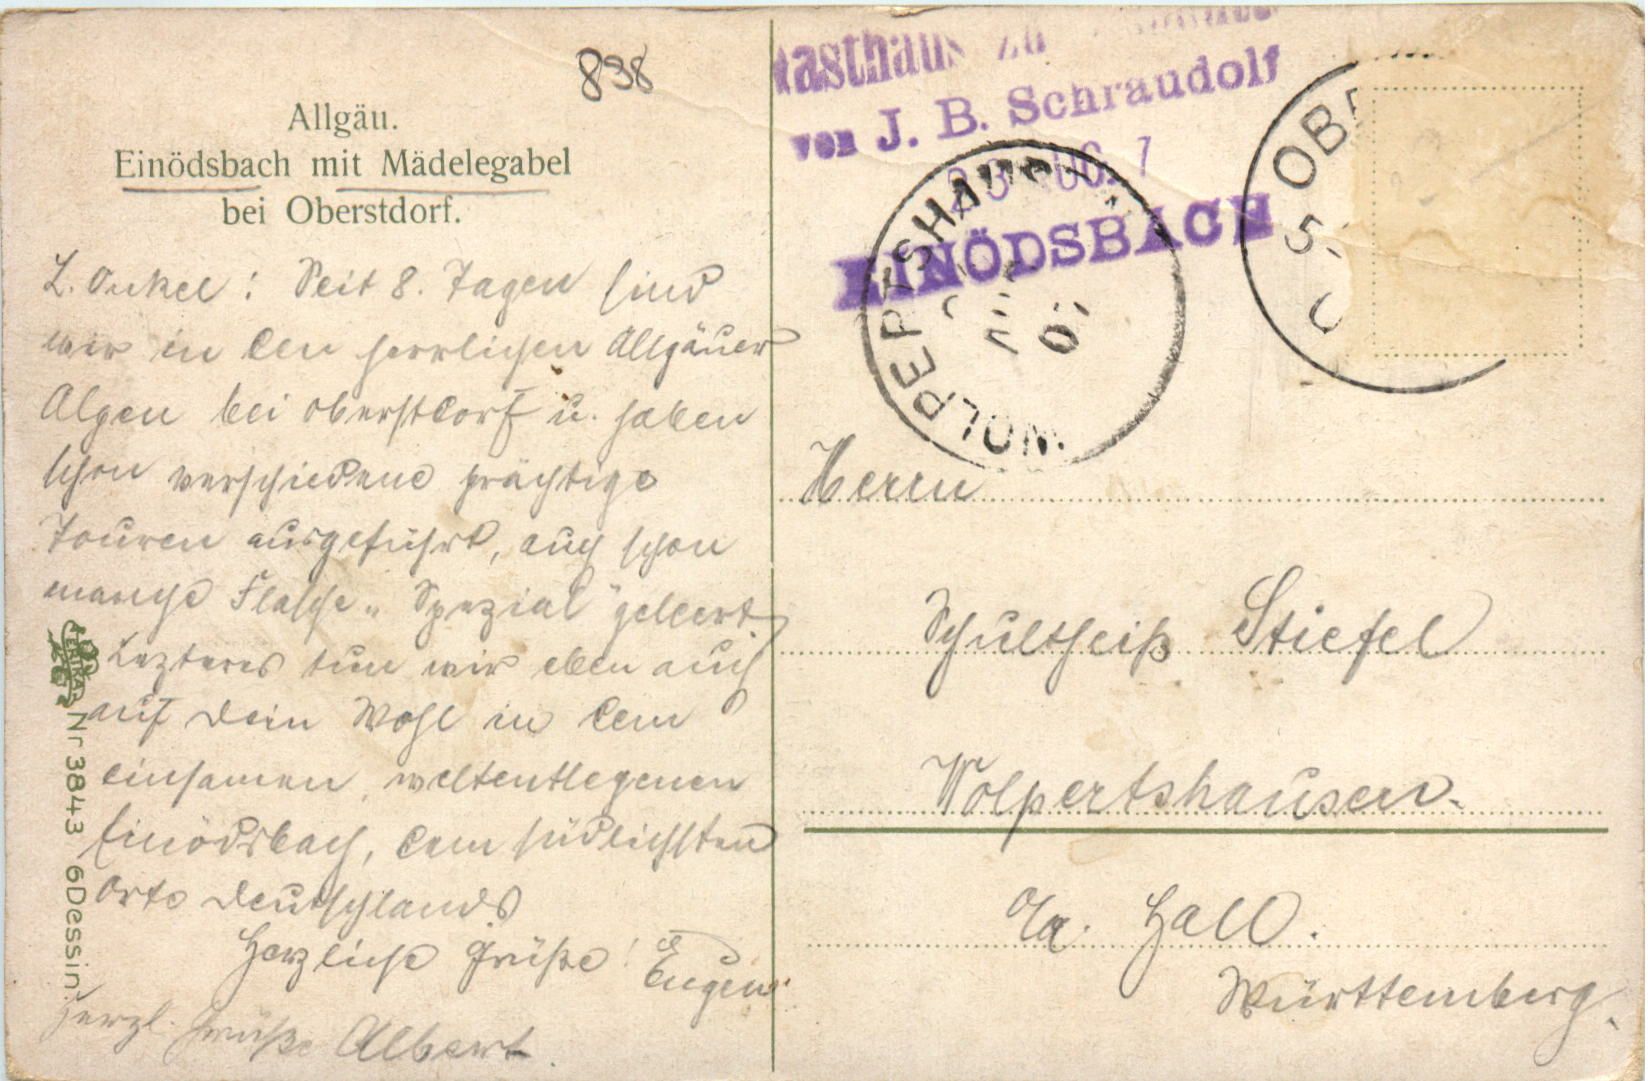 898
Allgäu.
Einödsbach mit Mädelegabel
bei Oberstdorf.
L. Onkel! Seit 8. Tagen sind
wir in den herrlichen Allgäuer
Alpen bei Oberstdorf u. haben
schon verschiedene prächtige
Touren ausgeführt, auch schon
manche Flasche „Spezial" geleert.
Lezteres tun wir eben auch
auf Dein Wohl in dem
einsamen, weltentlegenen
Einödsbach, dem südlichsten
Orte Deutschlands
Herzliche Grüße! Eugen
Herzl. Grüße Albert.
ERIKA
Nr 3843 6 Dessin.
von J. B. Schraudolf
EINÖDSBACH
WOLPERTSHAUSEN
07
Herrn
Schultheiß Stiefel
Wolpertshausen.
O/A. Hall.
Württemberg.